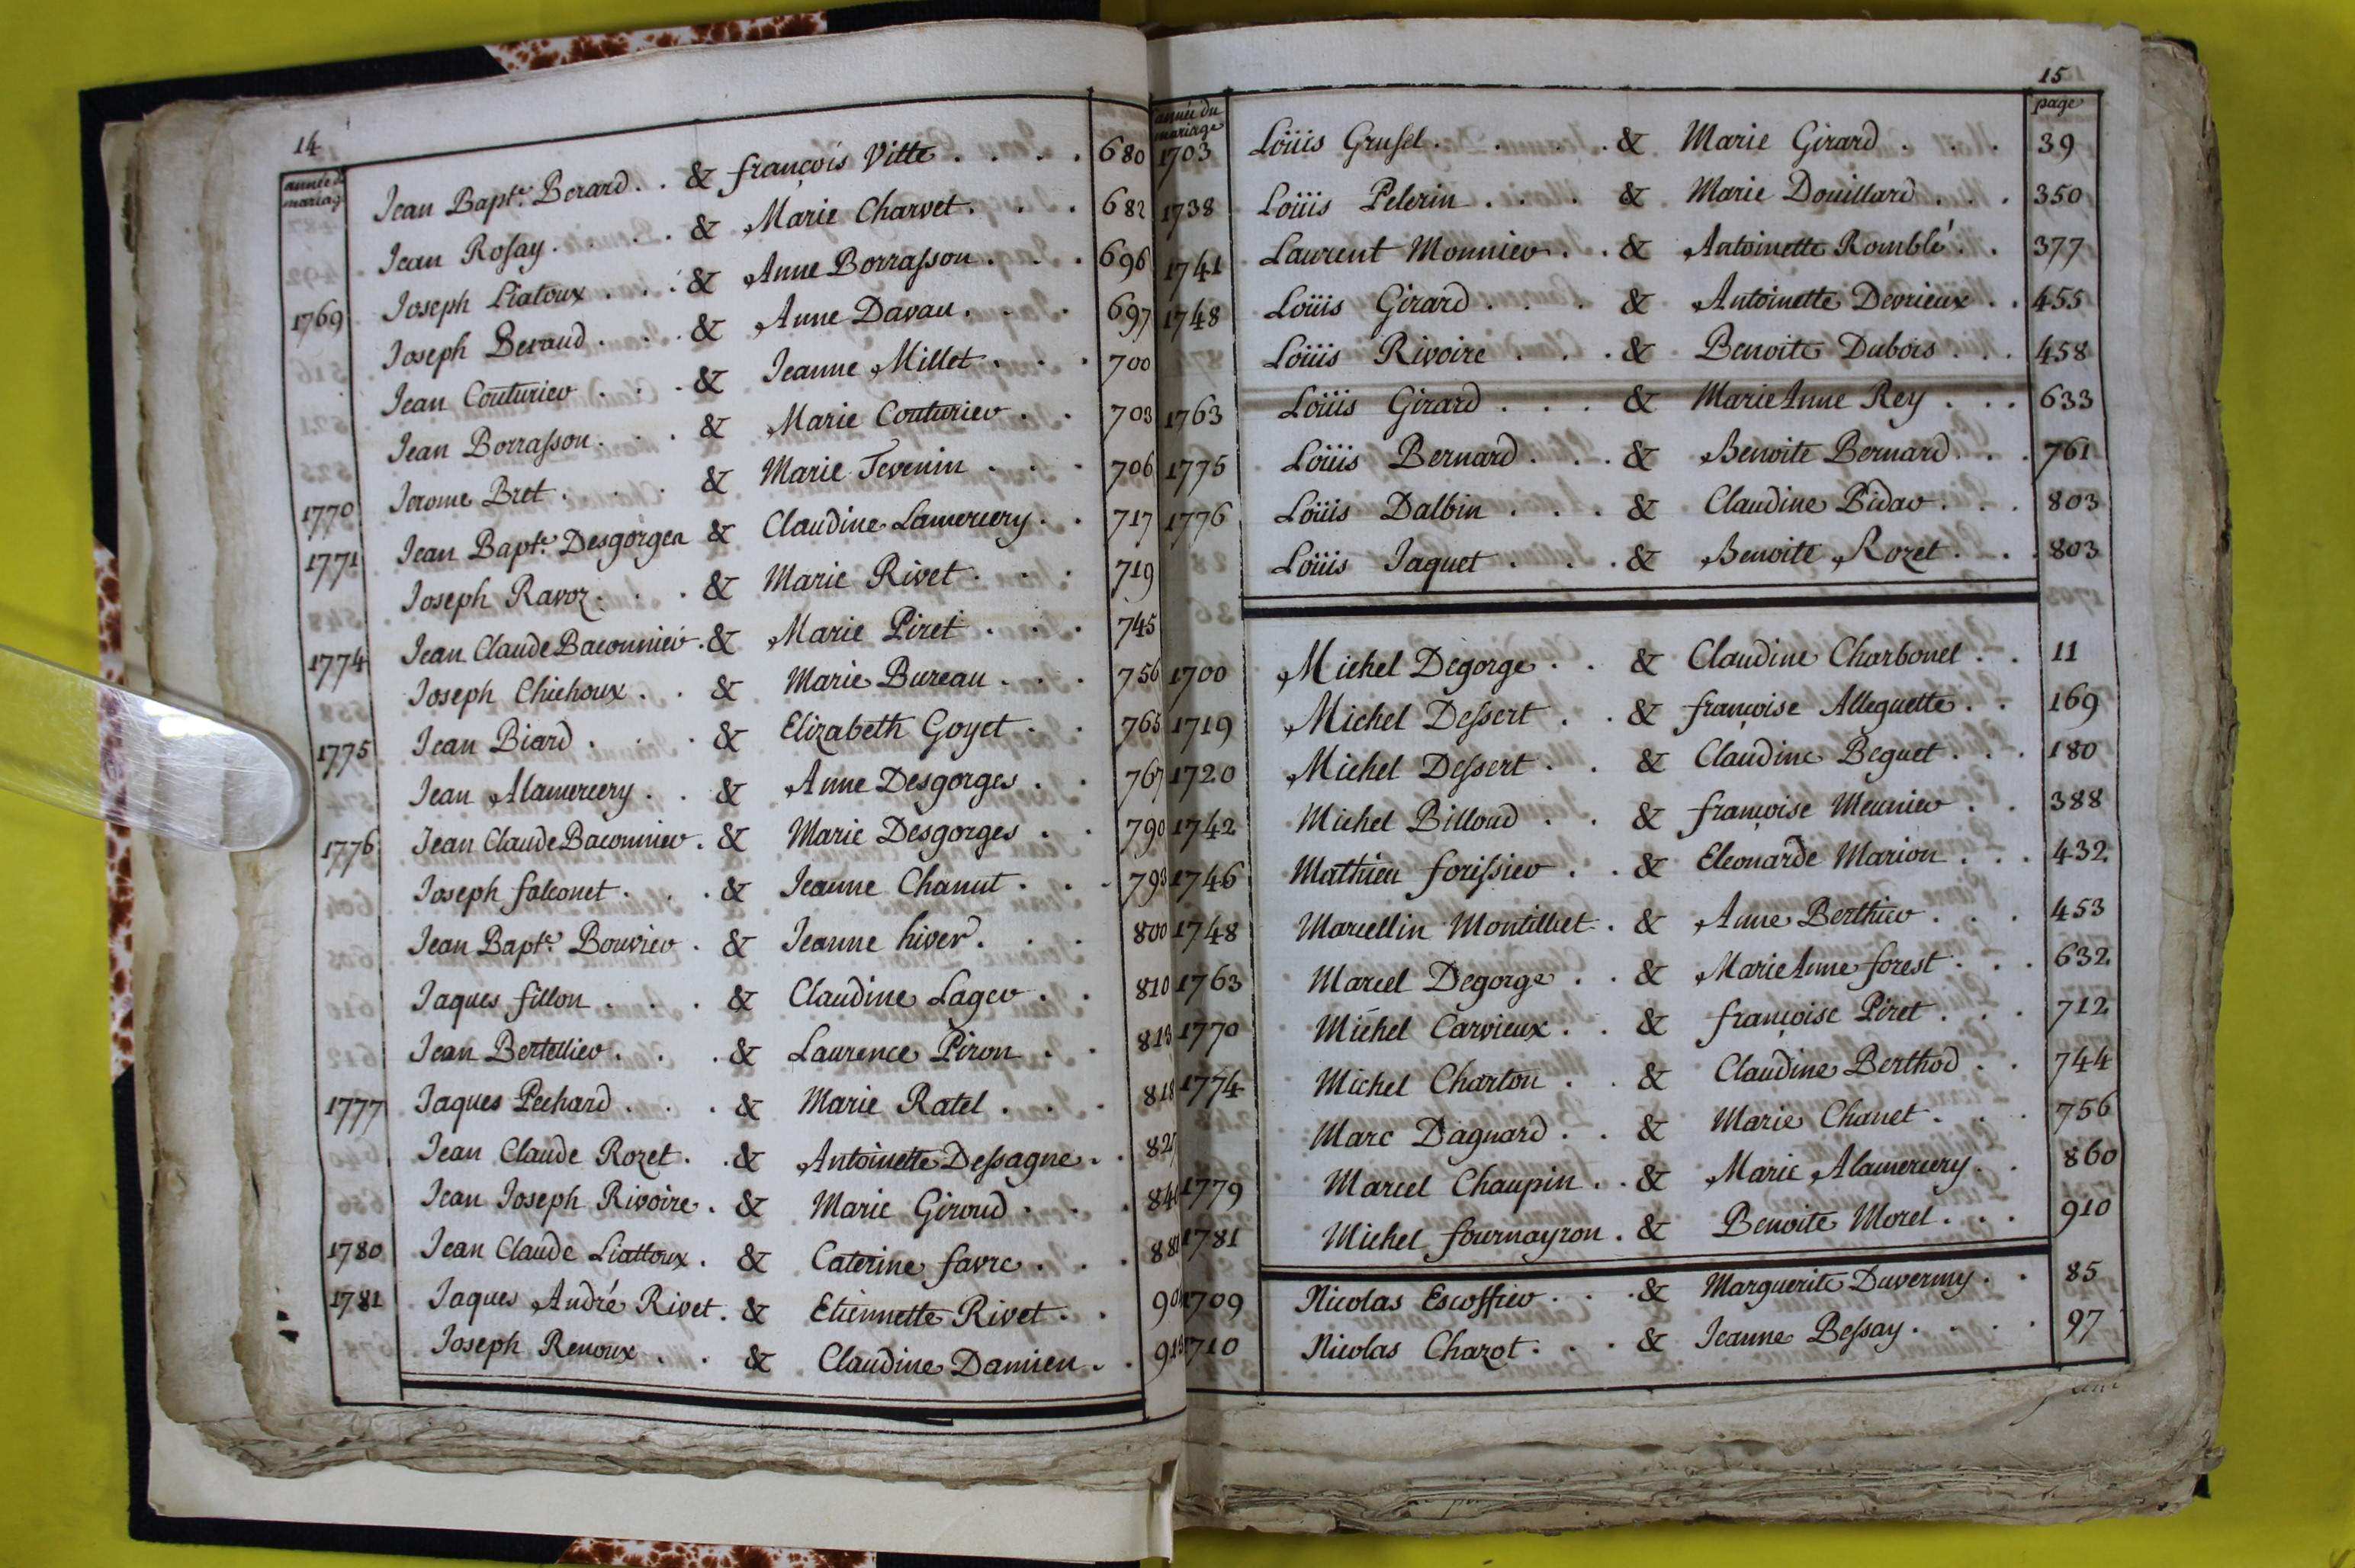 14
année du mariag
Jean Bapt.e Berard . . & françois Vitte . . . . 680
Jean Rosay . . . . & Marie Charvet . . . 682
Joseph Liatoux . . . & Anne Borrasson . . . 696
1769 Joseph Beraud . . . & Anne Davau . . . 697
Jean Couturier . . . & Jeanne Millet . . . 700
Jean Borrasson . . . & Marie Couturier . . 703
1770 Jerome Bret . . . . & Marie Tevenin . . . 706
1771 Jean Bapt.e Desgorges & Claudine Lamercery . . 717
Joseph Ravoz . . . & Marie Rivet . . . 719
1774 Jean Claude Baconnier . & Marie Piret . . . 745
Joseph Chichoux . . & Marie Bureau . . . 756
1775 Jean Biard . . . . & Elizabeth Goyet . . 765
Jean Alamercery . . & Anne Desgorges . . 767
1776 Jean Claude Baconnier . & Marie Desgorges . . 790
Joseph falconet . . . & Jeanne Chanut . . . 793
Jean Bapt.e Bouvier . & Jeanne hiver . . . 800
Jaques fillon . . . . & Claudine Lager . . 810
Jean Bertellier . . . & Laurence Piron . . 813
1777 Jaques Pechard . . . & Marie Ratel . . . 818
Jean Claude Rozet . . & Antoinette Dessagne . . 82
Jean Joseph Rivoire . & Marie Giroud . . . 84
1780 Jean Claude Liattoux . & Caterine favre . . . 88
1781 Jaques André Rivet . & Etiennette Rivet . . 90
Joseph Renoux . . & Claudine Damien . . 91
15
année du mariage
page
1703 Loüis Grusel . . . . & Marie Girard . . . 39
1738 Loüis Pelerin . . . & Marie Douillard . . . 350
1741 Laurent Monnier . . & Antoinette Romblé . . 377
1748 Loüis Girard . . . & Antoinette Devrieux . . 455
Loüis Rivoire . . . & Benoite Dubois . . . 458
1763 Loüis Girard . . . & Marie Anne Rey . . . 633
1775 Loüis Bernard . . . & Benoite Bernard . . . 761
1776 Loüis Dalbin . . . & Claudine Bidar . . . 803
Loüis Jaquet . . . & Benoite Rozet . . . 803
1700 Michel Degorge . . & Claudine Charbonel . . 11
1719 Michel Dessert . . & françoise Alleguette . . 169
1720 Michel Dessert . . & Claudine Beguet . . . 180
1742 Michel Billoud . . & françoise Meunier . . 388
1746 Mathieu forissier . . & Eleonarde Marion . . . 432
1748 Marcellin Montilliet . & Anne Berthier . . . 453
1763 Marcel Degorge . . & Marie Anne forest . . . 632
1770 Michel Carvieux . . & françoise Piret . . . 712
1774 Michel Charton . . & Claudine Berthod . . 744
Marc Dagnard . . & Marie Chanet . . . 756
1779 Marcel Chaupin . . & Marie Alamercery . . 860
1781 Michel fournayron . & Benoite Morel . . . 910
1709 Nicolas Escoffier . . . & Marguerite Duvernay . . 85
1710 Nicolas Charot . . . & Jeanne Bessay . . . . 97